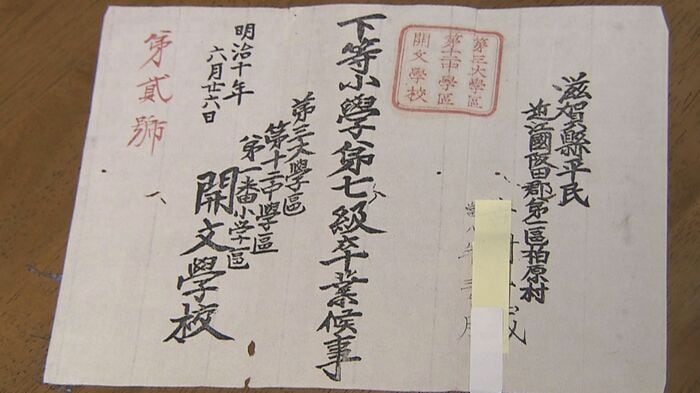 滋賀縣平民
近江國阪田郡第一區柏原村
第三大學區
第十二中學區
開文學校
下等小學第七級卒業候事
第三大學區
第十二中學區
第一番小学區
開文學校
明治十年
六月廿六日
第貳號